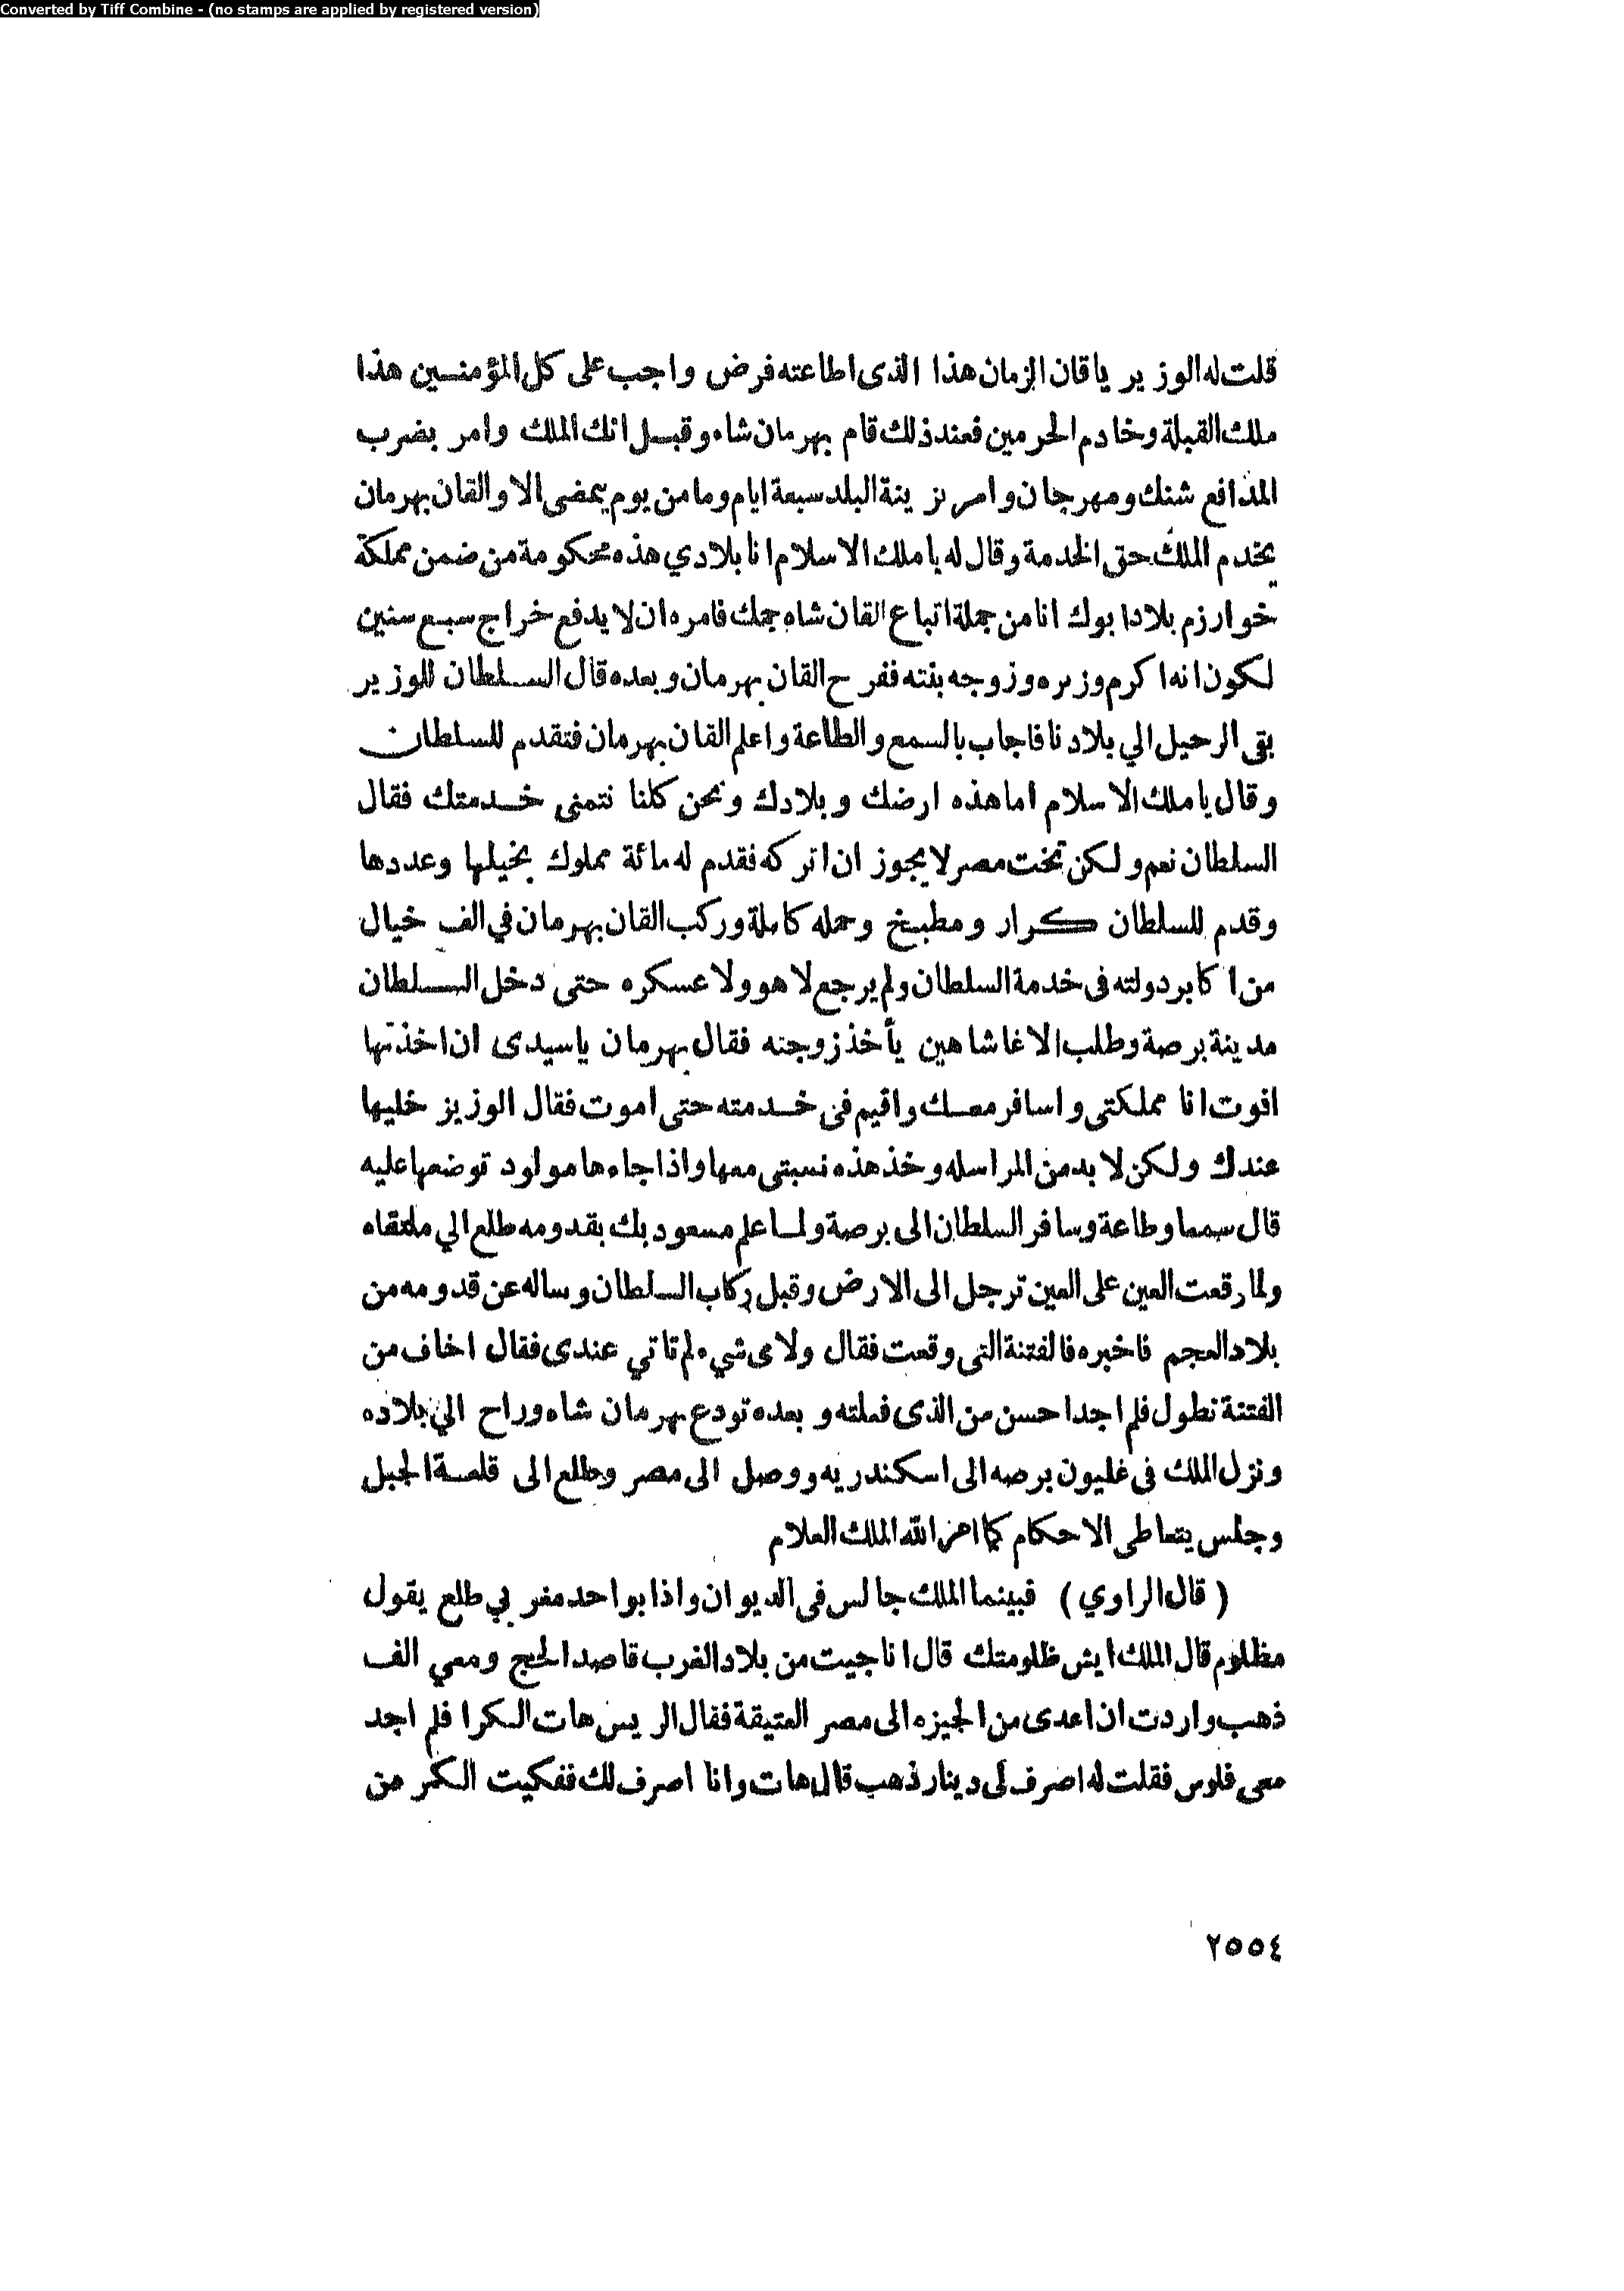 Converted by Tiff Combine - (no stamps are applied by registered version)
قلت له الوزير ياقان الزمان هذا الذى اطاعته فرض واجب على كل المؤمنسين هذا
ملك القبلة وخادم الحرمين فعند ذلك قام بهرمان شاه وقبل انك الملك وامر بضرب
المدافع شنك ومهرجان وامر بزينة البلد سبعة ايام وما من يوم يمضى الا والقان بهرمان
يخدم الملك حق الخدمة وقال له ياملك الاسلام انا بلادي هذه محكومة من ضمن مملكة
خوارزم بلاد ابوك انا من جملة اتباع القان شاه جمك فامره ان لا يدفع خراج سبع سنين
لكون انه اكرم وزيره وزوجه بنته ففرح القان بهرمان وبعده قال السلطان للوزير
بقى الرحيل الي بلادنا فاجاب بالسمع والطاعة واعلم القان بهرمان فتقدم للسلطان
وقال ياملك الاسلام اما هذه ارضك وبلادك ونحن كلنا نتمنى خدمتك فقال
السلطان نعم ولكن تخت مصر لا يجوز ان اتركه فقدم له مائة مملوك بخيلها وعددها
وقدم للسلطان كرار ومطبخ وحمله كاملة وركب القان بهرمان في الف خيال
من اكابر دولته فى خدمة السلطان ولم يرجع لا هو ولا عسكره حتى دخل السلطان
مدينة برصة وطلب الاغا شاهين يأخذ زوجته فقال بهرمان ياسيدى ان اخذتها
افوت انا مملكتى واسافر معك واقيم فى خدمته حتى اموت فقال الوزيز خليها
عندك ولكن لا بد من المراسله وخذ هذه نسبتى معها واذا جاءها مولود توضعها عليه
قال سمعا وطاعة وسافر السلطان الى برصة ولما علم مسعود بك بقدومه طلع الي ملتقاه
ولما رقعت العين على العين ترجل الى الارض وقبل ركاب السلطان وساله عن قدومه من
بلاد العجم فاخبره فالفتنة التى وقعت فقال ولاى شيء لم تاتي عندى فقال اخاف من
الفتنة تطول فلم اجد احسن من الذى فعلته وبعده تودع بهرمان شاه وراح الي بلاده
ونزل الملك فى غليون برصه الى اسكندريه ووصل الى مصر وطلع الى قلعة الجبل
وجلس يتعاطى الاحكام كما امر الله الملك العلام
( قال الراوي ) فبينما الملك جالس فى الديوان واذا بواحد مغربي طلع يقول
مظلوم قال الملك ايش ظلومتك قال انا جيت من بلاد الغرب قاصد الحج ومعي الف
ذهب واردت ان اعدى من الجيزه الى مصر العتيقة فقال الريس هات الكرا فلم اجد
معى فلوس فقلت له اصرف لى دينار ذهب قال هات وانا اصرف لك ففكيت الكمر من
٢٥٥٤